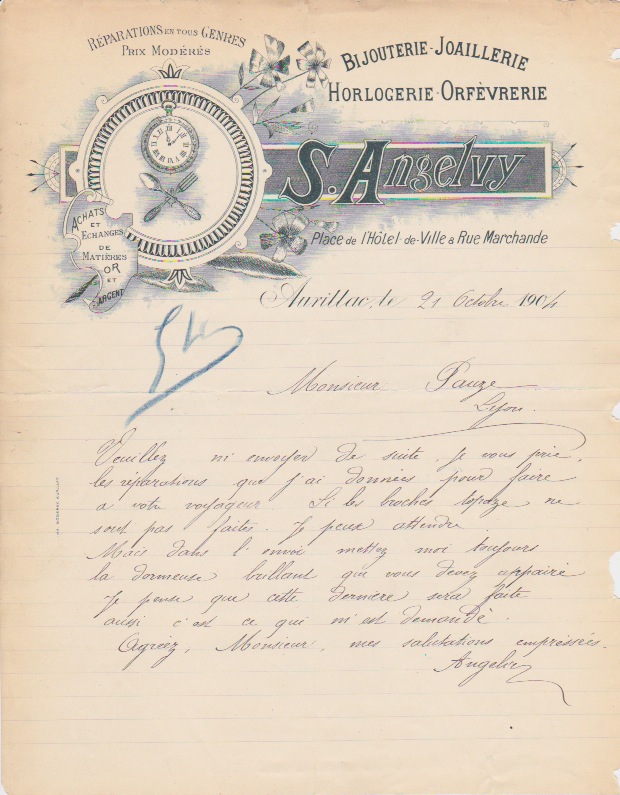 RÉPARATIONS EN TOUS GENRES
PRIX MODÉRÉS
BIJOUTERIE-JOAILLERIE
HORLOGERIE-ORFÈVRERIE
S. Angelvy
ACHATS
ET
ECHANGES
DE
MATIÈRES
OR
ET
ARGENT
Place de l'Hôtel-de-Ville & Rue Marchande
Aurillac, le 21 Octobre 1904
Monsieur Pauze
Lyon.
Veuillez m'envoyer de suite, je vous prie,
les réparations que j'ai données pour faire
a votre voyageur. Si les broches topaze ne
sont pas faites. Je peux attendre.
Mais dans l'envoi mettez moi toujours
la dormeuse brillant que vous devez appairé
Je pense que cette dernière sera faite
aussi c'est ce qui m'est demandé.
Agréez, Monsieur, mes salutations empressées.